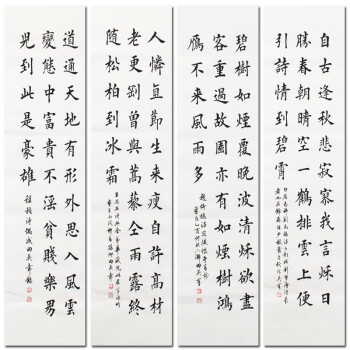 自古逢秋悲寂寥我言秋日
勝春朝晴空一鶴排雲上便
引詩情到碧霄
碧樹如煙覆晚波清秋欲盡
客重過故園亦有如煙樹鴻
鴈不來風雨多
人憐直節生來瘦自許高材
老更剛曾與蒿藜仝雨露終
隨松柏到冰霜
道通天地有形外思入風雲
變態中富貴不淫貧賤樂男
兒到此是豪雄 程顥詩偶成田英章錄